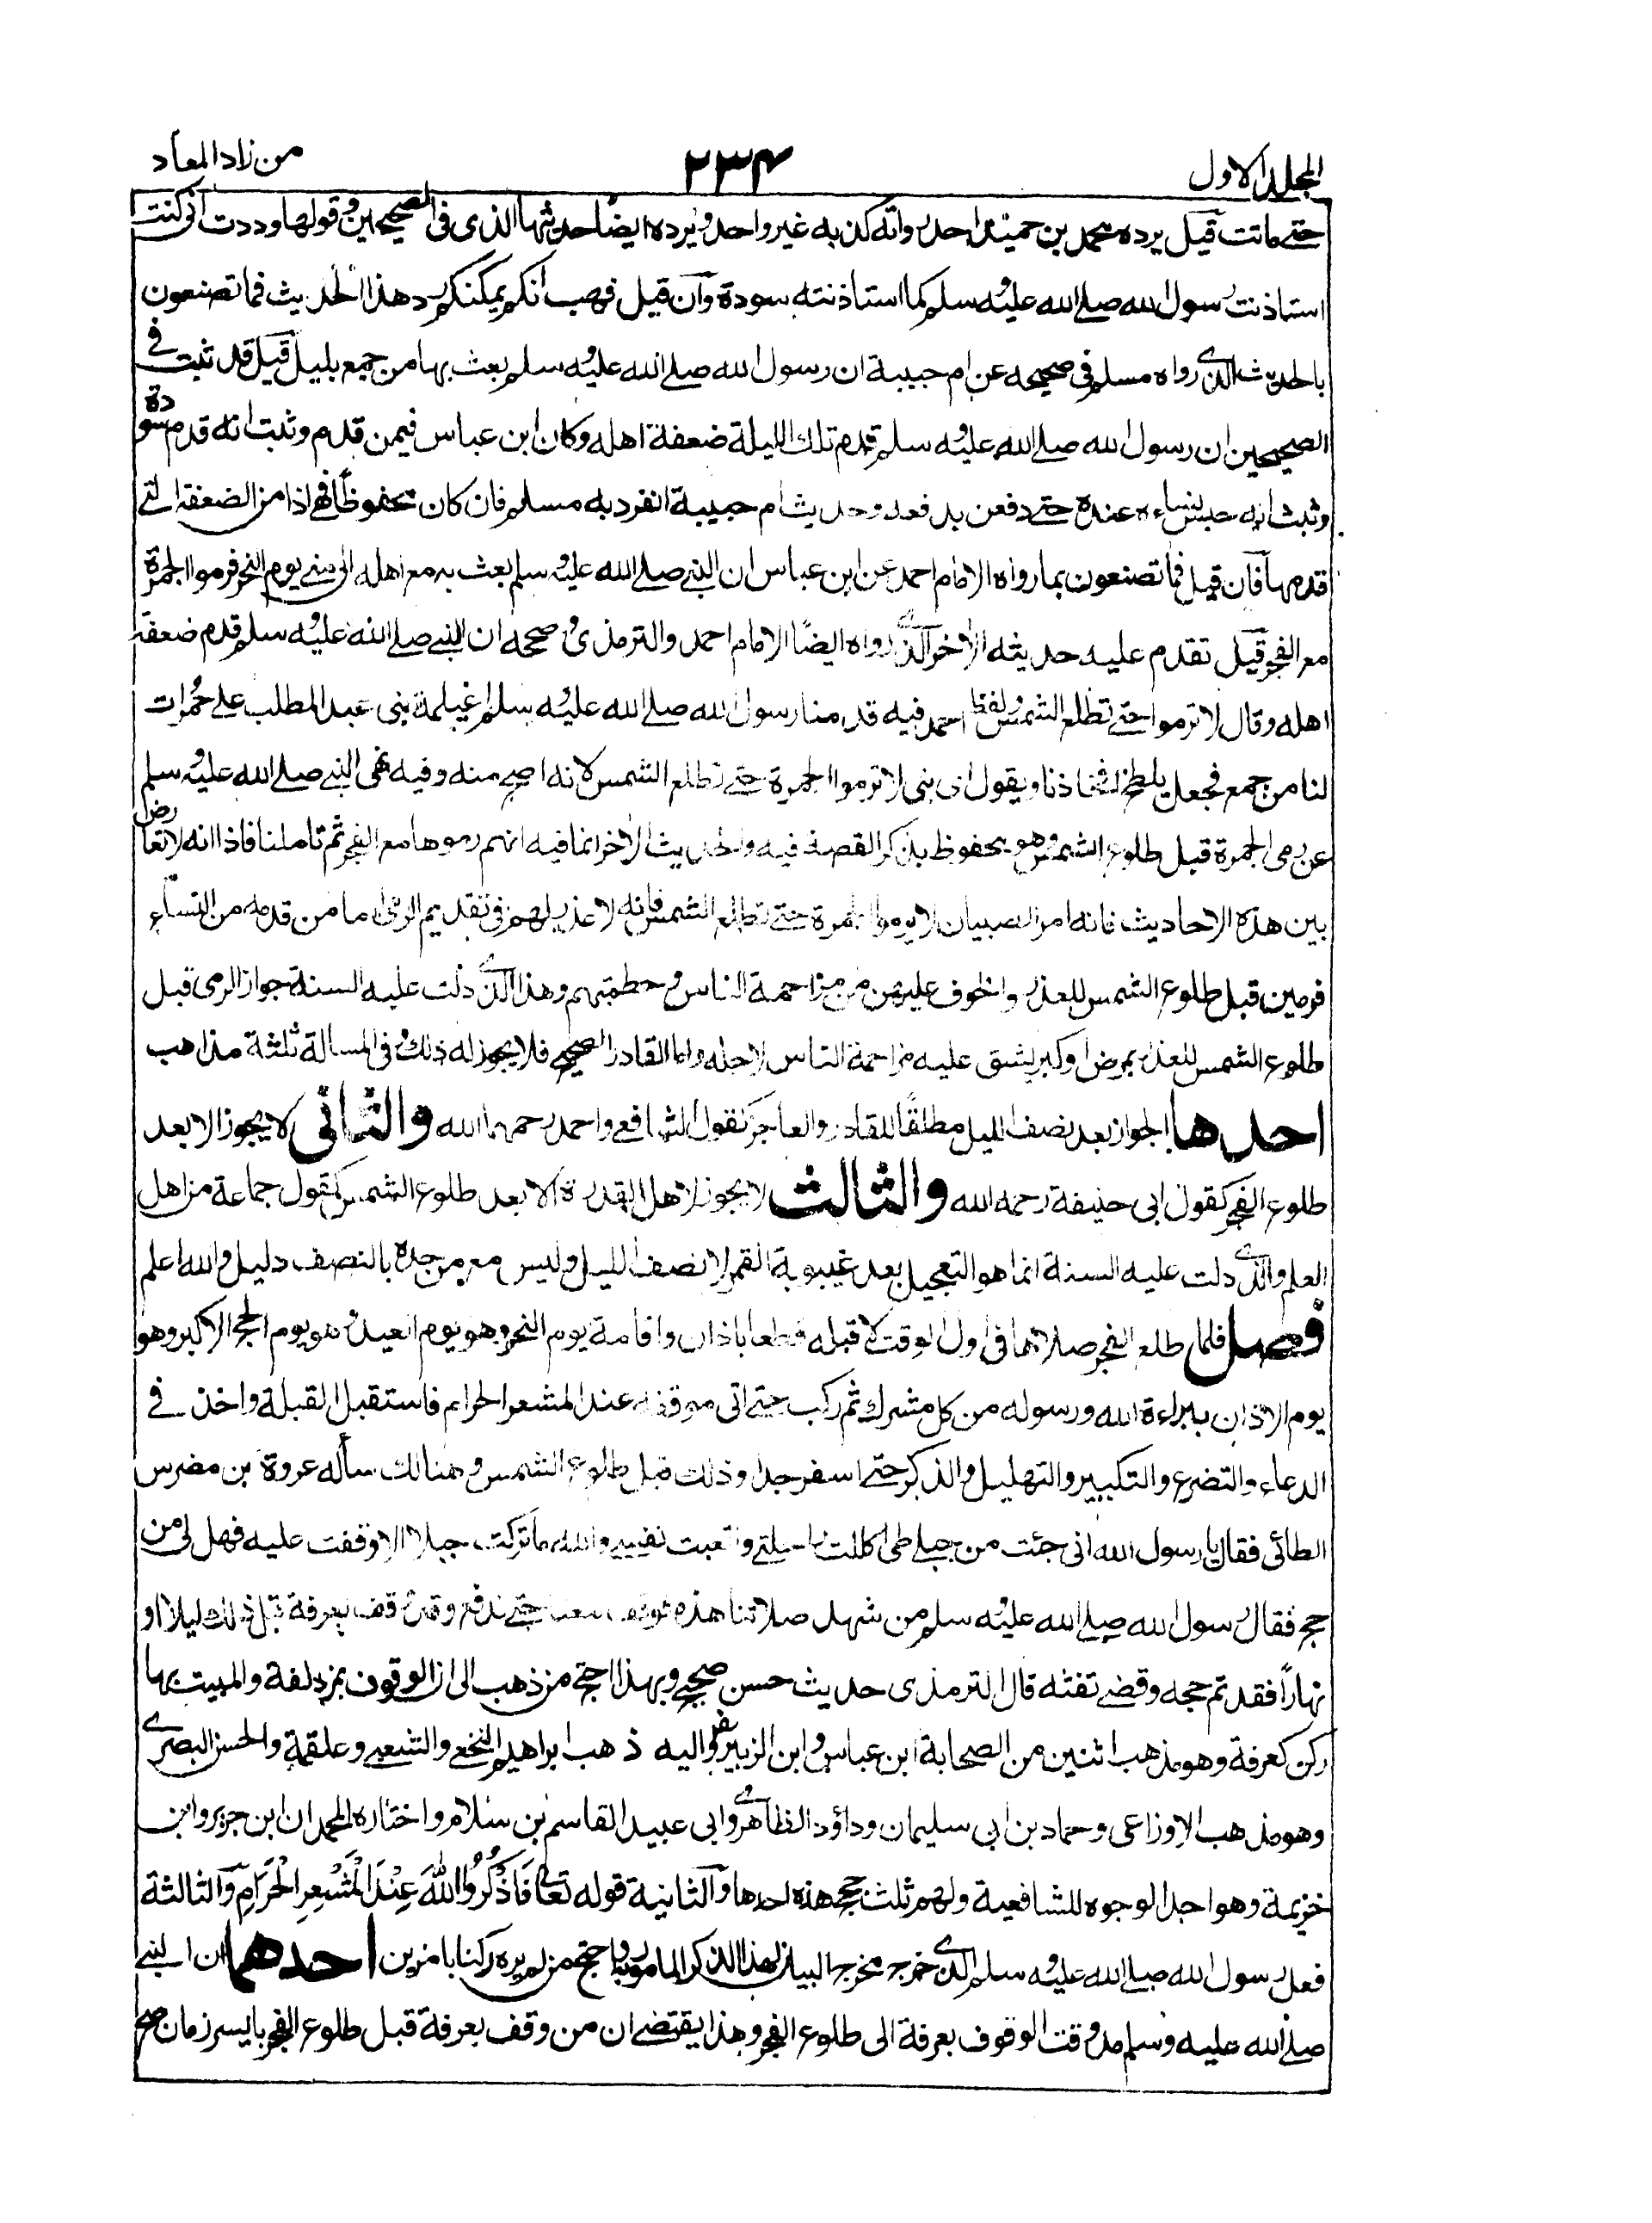 المجلد الاول
٢٣٤
من زاد المعاد
حتى ماتت قيل يرده محمد بن حميد احد رواته كذبه غير واحد ويرده ايضا حديثها الذى فى الصحيحين وقولها وددت انى كنت
استاذنت رسول الله صلے الله عليه وسلم كما استاذنته سودة وان قيل فهب انكم يمكنكم رد هذا الحديث فما تصنعون
بالحديث الذے رواه مسلم فى صحيحه عن ام حبيبة ان رسول الله صلے الله عليه وسلم بعث بها من جمع بليل قيل قد ثبت فے
الصحيحين ان رسول الله صلے الله عليه وسلم قدم تلك الليلة ضعفة اهله وكان ابن عباس فيمن قدم وثبت انه قدم سودة
وثبت انه حبس نساءه عنده حتے دفعن بدفعه وحديث ام حبيبة انفرد به مسلم فان كان محفوظا فهى اذا من الضعفة التے
قدمها فان قيل فما تصنعون بما رواه الامام احمد عن ابن عباس ان النبے صلے الله عليه وسلم بعث به مع اهله الى منے يوم النحر فرموا الجمرة
مع الفجر قيل تقدم عليه حديثه الاخر الذے رواه ايضا الامام احمد والترمذى وصححه ان النبے صلے الله عليه وسلم قدم ضعفة
اهله وقال لا ترموا حتے تطلع الشمس ولفظ احمد فيه قدمنا رسول الله صلے الله عليه وسلم اغيلمة بنى عبد المطلب علے حُمُرات
لنا من جمع فجعل يلطخ افخاذنا ويقول اى بنى لا ترموا الجمرة حتے تطلع الشمس لانه اصح منه وفيه نهى النبے صلے الله عليه وسلم
عن رمى الجمرة قبل طلوع الشمس وهو محفوظ بذكر القصة فيه والحديث الاخر انما فيه انهم رموها مع الفجر ثم تاملنا فاذا انه لا تعارض
بين هذه الاحاديث فانه امر الصبيان لا يرموا الجمرة حتے تطلع الشمس فانه لا عذر لهم فى تقديم الرمى اما من قدمه من النساء
فرمين قبل طلوع الشمس للعذر والخوف عليهن من مزاحمة الناس وحطمتهم وهذا الذے دلت عليه السنة جواز الرمى قبل
طلوع الشمس للعذر بمرض او كبر يشق عليه مزاحمة الناس لاجله واما القادر الصحيح فلا يجوز له ذلك وفى المسالة ثلثة مذاهب
احدها الجواز بعد نصف الليل مطلقًا للقادر والعاجز كقول الشافعے واحمد رحمهما الله والثانى لا يجوز الا بعد
طلوع الفجر كقول ابى حنيفة رحمه الله والثالث لا يجوز لاهل القدرة الا بعد طلوع الشمس كقول جماعة من اهل
العلم والذے دلت عليه السنة انما هو التعجيل بعد غيبوبة القمر لا نصف الليل وليس مع من حده بالنصف دليل والله اعلم
فصل فلما طلع الفجر صلاها فى اول الوقت لا قبله قطعا باذان واقامة يوم النحر وهو يوم العيد وهو يوم الحج الاكبر وهو
يوم الاذان ببراءة الله ورسوله من كل مشرك ثم ركب حتے اتى موقفه عند المشعر الحرام فاستقبل القبلة واخذ فے
الدعاء والتضرع والتكبير والتهليل والذكر حتے اسفر جدا وذلك قبل طلوع الشمس وهنالك سأله عروة بن مضرس
الطائى فقال يا رسول الله انى جئت من جبلے طى اكللت راحلتے واتعبت نفسے والله ما تركت جبلا الا وقفت عليه فهل لى من
حج فقال رسول الله صلے الله عليه وسلم من شهد صلاتنا هذه فوقف معنا حتے ندفع وقد وقف بعرفة قبل ذلك ليلا او
نهارًا فقد تم حجه وقضے تفثه قال الترمذى حديث حسن صحيح وبهذا احتج من ذهب الى ان الوقوف بمزدلفة والمبيت بها
ركن كعرفة وهو مذهب اثنين من الصحابة ابن عباس وابن الزبير واليه ذهب ابراهيم النخعے والشعبے وعلقمة والحسن البصرے
وهو مذهب الاوزاعى وحماد بن ابى سليمان وداؤد الظاهرے وابى عبيد القاسم بن سلام واختاره المحمدان ابن جرير وابن
خزيمة وهو احد الوجوه للشافعية ولهم ثلث حجج هذه احدها والثانية قوله تعالى فَاذْكُرُوا اللهَ عِنْدَ الْمَشْعَرِ الْحَرَامِ والثالثة
فعل رسول الله صلے الله عليه وسلم الذے خرج مخرج البيان لهذا الذكر المامور به واحتج من لم يره ركنا بامرين احدهما ان النبے
صلے الله عليه وسلم مد وقت الوقوف بعرفة الى طلوع الفجر وهذا يقتضے ان من وقف بعرفة قبل طلوع الفجر بايسر زمان صح